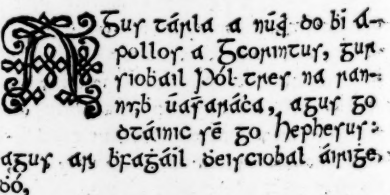 AGus tárla a núair do bí A-
pollos a Gcorintus, gur
siobail Pól tres na ran-
agus go
dtáinic sé go Hephesus:
agus ar bfagáil deisciobal áiriġe,
dó,